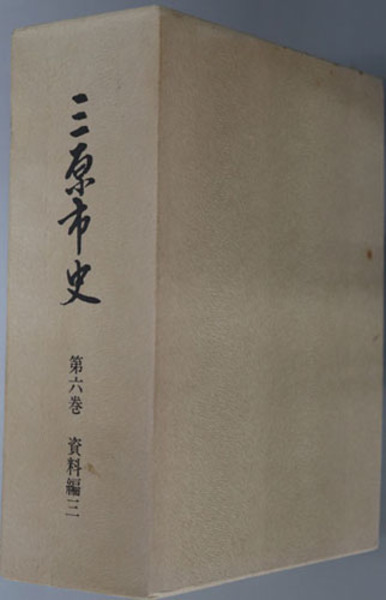 三原市史
第六巻 資料編三